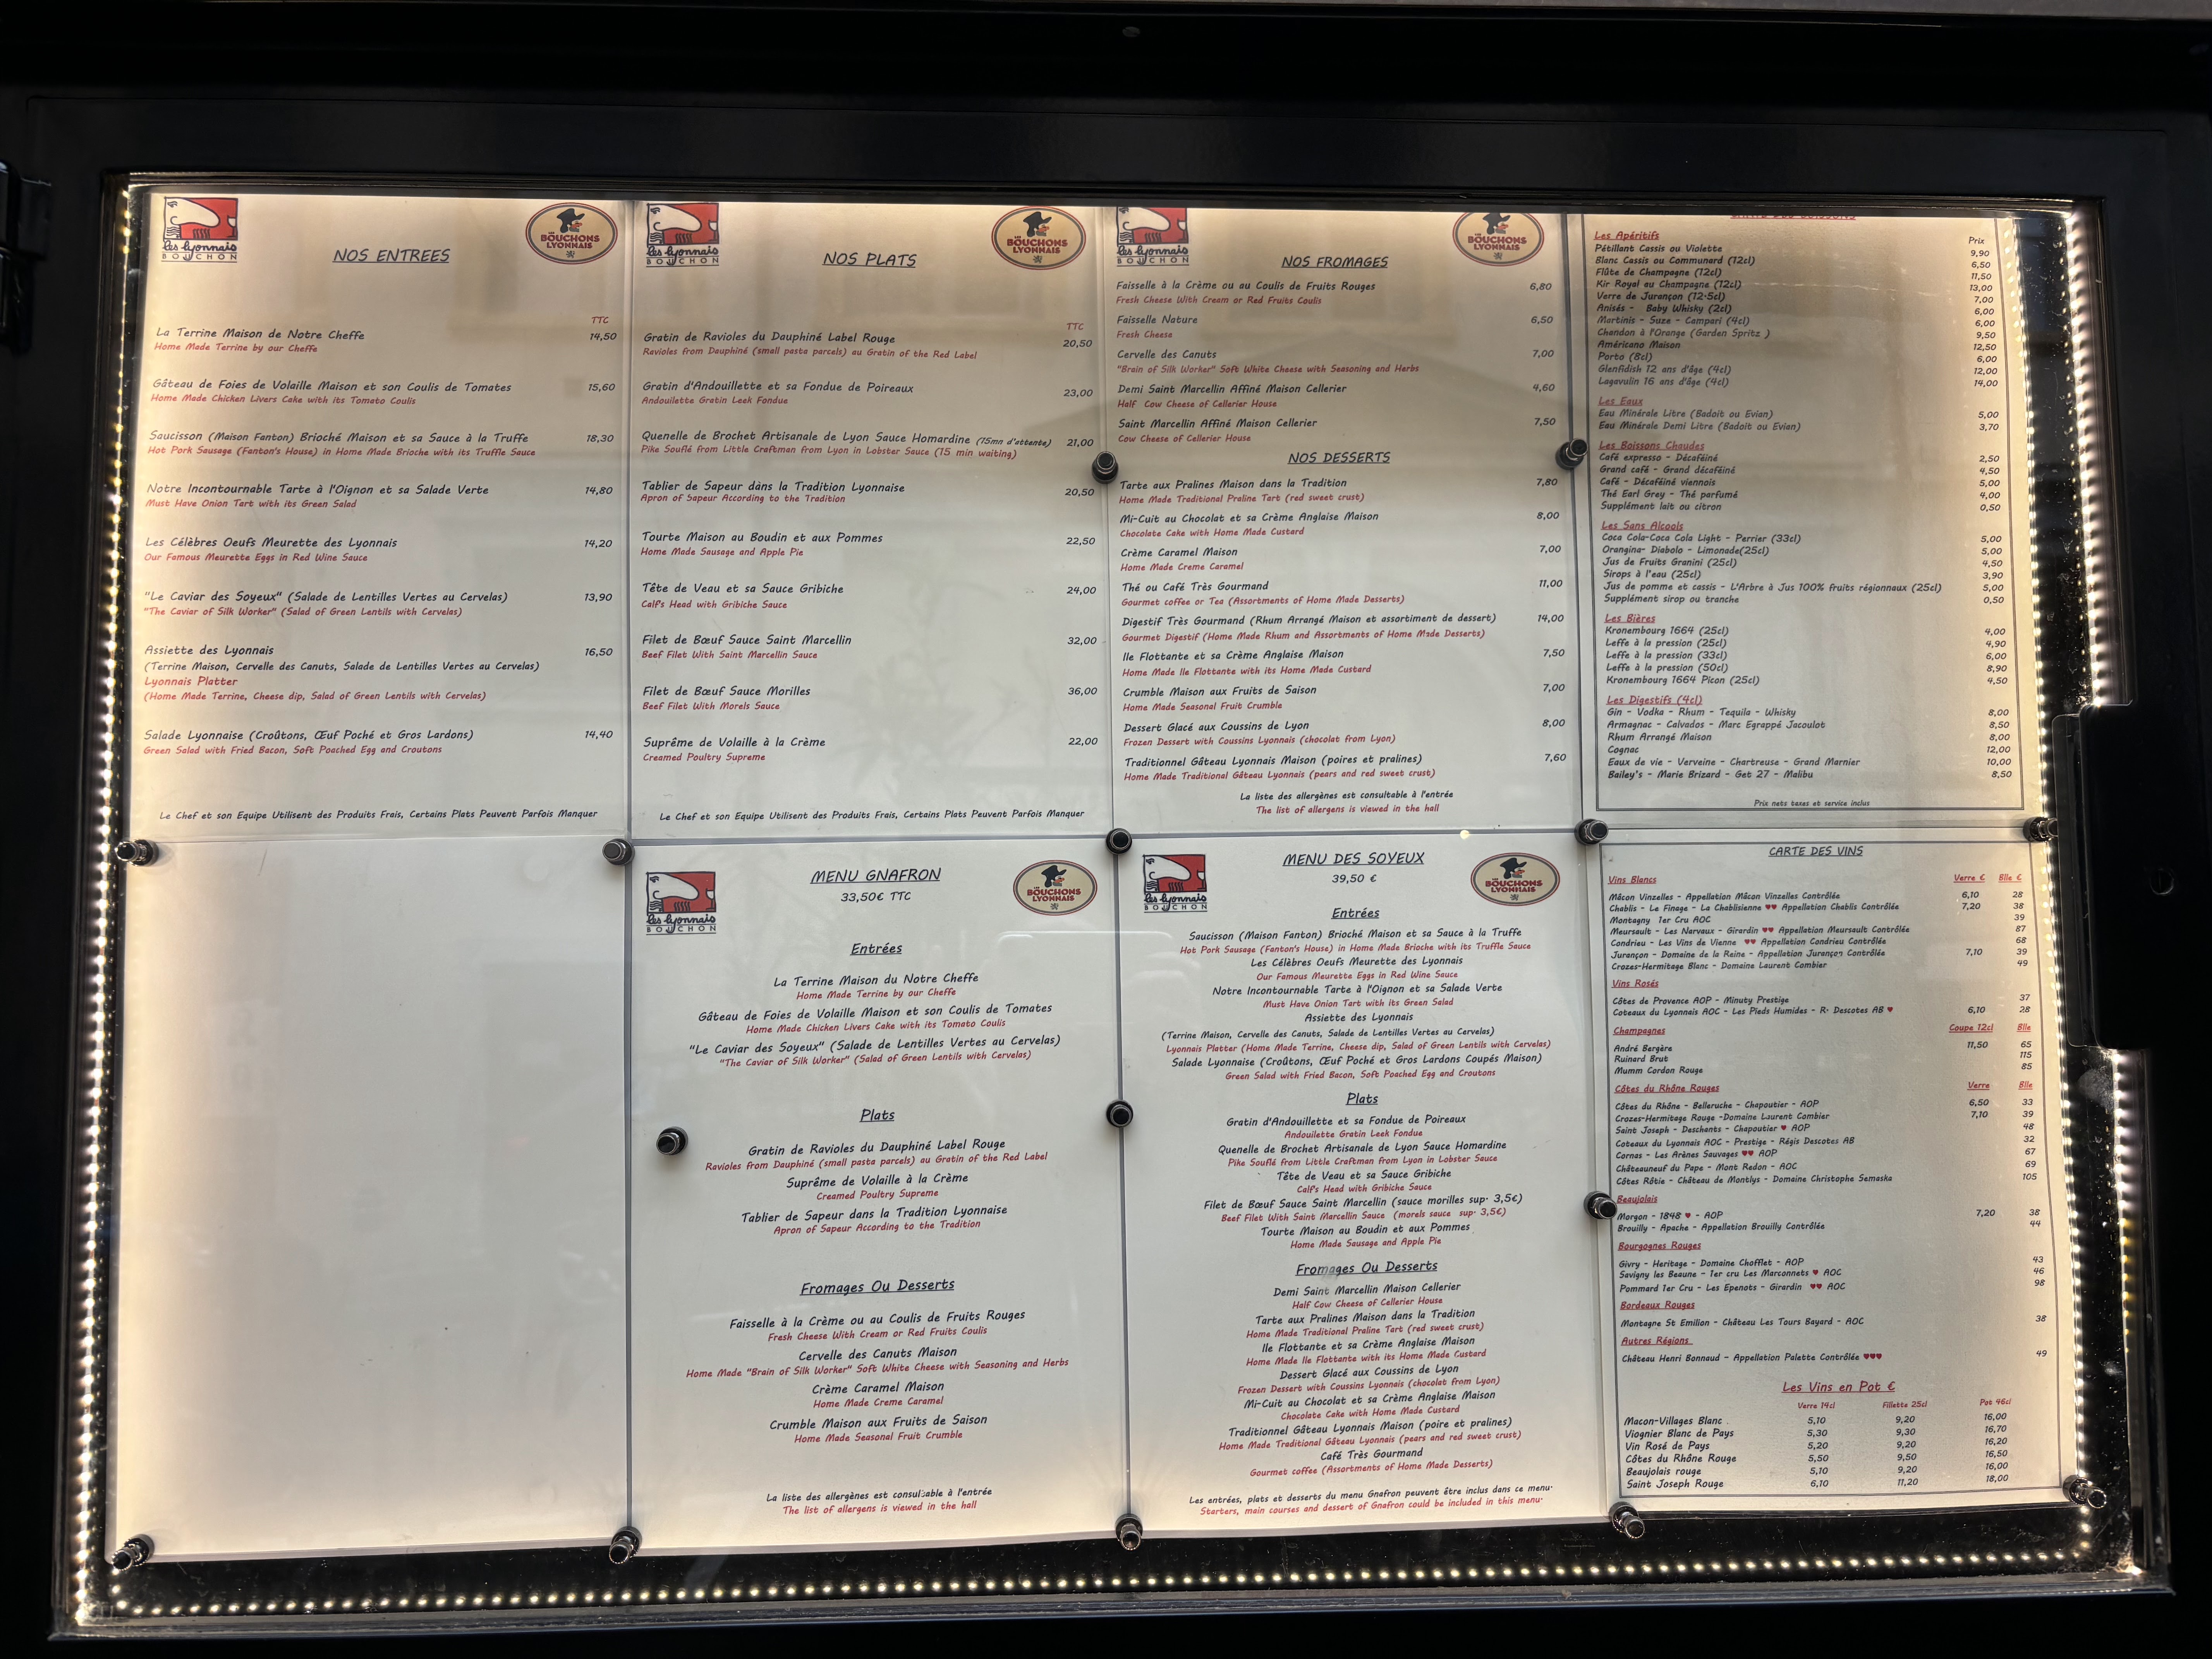 les lyonnais
BOUCHON
NOS ENTREES
LES
BOUCHONS
LYONNAIS
TTC
La Terrine Maison de Notre Cheffe 14,50
Home Made Terrine by our Cheffe
Gâteau de Foies de Volaille Maison et son Coulis de Tomates 15,60
Home Made Chicken Livers Cake with its Tomato Coulis
Saucisson (Maison Fanton) Brioché Maison et sa Sauce à la Truffe 18,30
Hot Pork Sausage (Fanton's House) in Home Made Brioche with its Truffle Sauce
Notre Incontournable Tarte à l'Oignon et sa Salade Verte 14,80
Must Have Onion Tart with its Green Salad
Les Célèbres Oeufs Meurette des Lyonnais 14,20
Our Famous Meurette Eggs in Red Wine Sauce
"Le Caviar des Soyeux" (Salade de Lentilles Vertes au Cervelas) 13,90
"The Caviar of Silk Worker" (Salad of Green Lentils with Cervelas)
Assiette des Lyonnais 16,50
(Terrine Maison, Cervelle des Canuts, Salade de Lentilles Vertes au Cervelas)
Lyonnais Platter
(Home Made Terrine, Cheese dip, Salad of Green Lentils with Cervelas)
Salade Lyonnaise (Croûtons, Œuf Poché et Gros Lardons) 14,40
Green Salad with Fried Bacon, Soft Poached Egg and Croutons
Le Chef et son Equipe Utilisent des Produits Frais, Certains Plats Peuvent Parfois Manquer
les lyonnais
BOUCHON
NOS PLATS
LES
BOUCHONS
LYONNAIS
TTC
Gratin de Ravioles du Dauphiné Label Rouge 20,50
Ravioles from Dauphiné (small pasta parcels) au Gratin of the Red Label
Gratin d'Andouillette et sa Fondue de Poireaux 23,00
Andouilette Gratin Leek Fondue
Quenelle de Brochet Artisanale de Lyon Sauce Homardine (15mn d'attente) 21,00
Pike Souflé from Little Craftman from Lyon in Lobster Sauce (15 min waiting)
Tablier de Sapeur dans la Tradition Lyonnaise 20,50
Apron of Sapeur According to the Tradition
Tourte Maison au Boudin et aux Pommes 22,50
Home Made Sausage and Apple Pie
Tête de Veau et sa Sauce Gribiche 24,00
Calf's Head with Gribiche Sauce
Filet de Bœuf Sauce Saint Marcellin 32,00
Beef Filet With Saint Marcellin Sauce
Filet de Bœuf Sauce Morilles 36,00
Beef Filet With Morels Sauce
Suprême de Volaille à la Crème 22,00
Creamed Poultry Supreme
Le Chef et son Equipe Utilisent des Produits Frais, Certains Plats Peuvent Parfois Manquer
les lyonnais
BOUCHON
NOS FROMAGES
LES
BOUCHONS
LYONNAIS
Faisselle à la Crème ou au Coulis de Fruits Rouges 6,80
Fresh Cheese With Cream or Red Fruits Coulis
Faisselle Nature 6,50
Fresh Cheese
Cervelle des Canuts 7,00
"Brain of Silk Worker" Soft White Cheese with Seasoning and Herbs
Demi Saint Marcellin Affiné Maison Cellerier 4,60
Half Cow Cheese of Cellerier House
Saint Marcellin Affiné Maison Cellerier 7,50
Cow Cheese of Cellerier House
NOS DESSERTS
Tarte aux Pralines Maison dans la Tradition 7,80
Home Made Traditional Praline Tart (red sweet crust)
Mi-Cuit au Chocolat et sa Crème Anglaise Maison 8,00
Chocolate Cake with Home Made Custard
Crème Caramel Maison 7,00
Home Made Creme Caramel
Thé ou Café Très Gourmand 11,00
Gourmet coffee or Tea (Assortments of Home Made Desserts)
Digestif Très Gourmand (Rhum Arrangé Maison et assortiment de dessert) 14,00
Gourmet Digestif (Home Made Rhum and Assortments of Home Made Desserts)
Ile Flottante et sa Crème Anglaise Maison 7,50
Home Made Ile Flottante with its Home Made Custard
Crumble Maison aux Fruits de Saison 7,00
Home Made Seasonal Fruit Crumble
Dessert Glacé aux Coussins de Lyon 8,00
Frozen Dessert with Coussins Lyonnais (chocolat from Lyon)
Traditionnel Gâteau Lyonnais Maison (poires et pralines) 7,60
Home Made Traditional Gâteau Lyonnais (pears and red sweet crust)
La liste des allergènes est consultable à l'entrée
The list of allergens is viewed in the hall
CARTE DES BOISSONS
Les Apéritifs Prix
Pétillant Cassis ou Violette 9,90
Blanc Cassis ou Communard (12cl) 6,50
Flûte de Champagne (12cl) 11,50
Kir Royal au Champagne (12cl) 13,00
Verre de Jurançon (12.5cl) 7,00
Anisés - Baby Whisky (2cl) 6,00
Martinis - Suze - Campari (4cl) 6,00
Chandon à l'Orange (Garden Spritz ) 9,50
Américano Maison 12,50
Porto (8cl) 6,00
Glenfidish 12 ans d'âge (4cl) 12,00
Lagavulin 16 ans d'âge (4cl) 14,00
Les Eaux
Eau Minérale Litre (Badoit ou Evian) 5,00
Eau Minérale Demi Litre (Badoit ou Evian) 3,70
Les Boissons Chaudes
Café expresso - Décaféiné 2,50
Grand café - Grand décaféiné 4,50
Café - Décaféiné viennois 5,00
Thé Earl Grey - Thé parfumé 4,00
Supplément lait ou citron 0,50
Les Sans Alcools
Coca Cola-Coca Cola Light - Perrier (33cl) 5,00
Orangina- Diabolo - Limonade(25cl) 5,00
Jus de Fruits Granini (25cl) 4,50
Sirops à l'eau (25cl) 3,90
Jus de pomme et cassis - L'Arbre à Jus 100% fruits régionnaux (25cl) 5,00
Supplément sirop ou tranche 0,50
Les Bières
Kronembourg 1664 (25cl) 4,00
Leffe à la pression (25cl) 4,90
Leffe à la pression (33cl) 6,00
Leffe à la pression (50cl) 8,90
Kronembourg 1664 Picon (25cl) 4,50
Les Digestifs (4cl)
Gin - Vodka - Rhum - Tequila - Whisky 8,00
Armagnac - Calvados - Marc Egrappé Jacoulot 8,50
Rhum Arrangé Maison 8,00
Cognac 12,00
Eaux de vie - Verveine - Chartreuse - Grand Marnier 10,00
Bailey's - Marie Brizard - Get 27 - Malibu 8,50
Prix nets taxes et service inclus
les lyonnais
BOUCHON
MENU GNAFRON
33,50€ TTC
LES
BOUCHONS
LYONNAIS
Entrées
La Terrine Maison du Notre Cheffe
Home Made Terrine by our Cheffe
Gâteau de Foies de Volaille Maison et son Coulis de Tomates
Home Made Chicken Livers Cake with its Tomato Coulis
"Le Caviar des Soyeux" (Salade de Lentilles Vertes au Cervelas)
"The Caviar of Silk Worker" (Salad of Green Lentils with Cervelas)
Plats
Gratin de Ravioles du Dauphiné Label Rouge
Ravioles from Dauphiné (small pasta parcels) au Gratin of the Red Label
Suprême de Volaille à la Crème
Creamed Poultry Supreme
Tablier de Sapeur dans la Tradition Lyonnaise
Apron of Sapeur According to the Tradition
Fromages Ou Desserts
Faisselle à la Crème ou au Coulis de Fruits Rouges
Fresh Cheese With Cream or Red Fruits Coulis
Cervelle des Canuts Maison
Home Made "Brain of Silk Worker" Soft White Cheese with Seasoning and Herbs
Crème Caramel Maison
Home Made Creme Caramel
Crumble Maison aux Fruits de Saison
Home Made Seasonal Fruit Crumble
La liste des allergènes est consultable à l'entrée
The list of allergens is viewed in the hall
les lyonnais
BOUCHON
MENU DES SOYEUX
39,50 €
LES
BOUCHONS
LYONNAIS
Entrées
Saucisson (Maison Fanton) Brioché Maison et sa Sauce à la Truffe
Hot Pork Sausage (Fanton's House) in Home Made Brioche with its Truffle Sauce
Les Célèbres Oeufs Meurette des Lyonnais
Our Famous Meurette Eggs in Red Wine Sauce
Notre Incontournable Tarte à l'Oignon et sa Salade Verte
Must Have Onion Tart with its Green Salad
Assiette des Lyonnais
(Terrine Maison, Cervelle des Canuts, Salade de Lentilles Vertes au Cervelas)
Lyonnais Platter (Home Made Terrine, Cheese dip, Salad of Green Lentils with Cervelas)
Salade Lyonnaise (Croûtons, Œuf Poché et Gros Lardons Coupés Maison)
Green Salad with Fried Bacon, Soft Poached Egg and Croutons
Plats
Gratin d'Andouillette et sa Fondue de Poireaux
Andouilette Gratin Leek Fondue
Quenelle de Brochet Artisanale de Lyon Sauce Homardine
Pike Souflé from Little Craftman from Lyon in Lobster Sauce
Tête de Veau et sa Sauce Gribiche
Calf's Head with Gribiche Sauce
Filet de Bœuf Sauce Saint Marcellin (sauce morilles sup. 3,5€)
Beef Filet With Saint Marcellin Sauce (morels sauce sup. 3,5€)
Tourte Maison au Boudin et aux Pommes
Home Made Sausage and Apple Pie
Fromages Ou Desserts
Demi Saint Marcellin Maison Cellerier
Half Cow Cheese of Cellerier House
Tarte aux Pralines Maison dans la Tradition
Home Made Traditional Praline Tart (red sweet crust)
Ile Flottante et sa Crème Anglaise Maison
Home Made Ile Flottante with its Home Made Custard
Dessert Glacé aux Coussins de Lyon
Frozen Dessert with Coussins Lyonnais (chocolat from Lyon)
Mi-Cuit au Chocolat et sa Crème Anglaise Maison
Chocolate Cake with Home Made Custard
Traditionnel Gâteau Lyonnais Maison (poire et pralines)
Home Made Traditional Gâteau Lyonnais (pears and red sweet crust)
Café Très Gourmand
Gourmet coffee (Assortments of Home Made Desserts)
Les entrées, plats et desserts du menu Gnafron peuvent être inclus dans ce menu.
Starters, main courses and dessert of Gnafron could be included in this menu.
CARTE DES VINS
Vins Blancs Verre € Blle €
Mâcon Vinzelles - Appellation Mâcon Vinzelles Contrôlée 6,10 28
Chablis - Le Finage - La Chablisienne ♥♥ Appellation Chablis Contrôlée 7,20 38
Montagny 1er Cru AOC 39
Meursault - Les Narvaux - Girardin ♥♥ Appellation Meursault Contrôlée 87
Condrieu - Les Vins de Vienne ♥♥ Appellation Condrieu Contrôlée 68
Jurançon - Domaine de la Reine - Appellation Jurançon Contrôlée 7,10 39
Crozes-Hermitage Blanc - Domaine Laurent Combier 49
Vins Rosés
Côtes de Provence AOP - Minuty Prestige 37
Coteaux du Lyonnais AOC - Les Pieds Humides - R. Descotes AB ♥ 6,10 28
Champagnes Coupe 12cl Blle
André Bergère 11,50 65
Ruinard Brut 115
Mumm Cordon Rouge 85
Côtes du Rhône Rouges Verre Blle
Côtes du Rhône - Belleruche - Chapoutier - AOP 6,50 33
Crozes-Hermitage Rouge -Domaine Laurent Combier 7,10 39
Saint Joseph - Deschants - Chapoutier ♥ AOP 48
Coteaux du Lyonnais AOC - Prestige - Régis Descotes AB 32
Cornas - Les Arènes Sauvages ♥♥ AOP 67
Châteauneuf du Pape - Mont Redon - AOC 69
Côtes Rôtie - Château de Montlys - Domaine Christophe Semaska 105
Beaujolais
Morgon - 1848 ♥ - AOP 7,20 38
Brouilly - Apache - Appellation Brouilly Contrôlée 44
Bourgognes Rouges
Givry - Heritage - Domaine Chofflet - AOP 43
Savigny les Beaune - 1er cru Les Marconnets ♥ AOC 46
Pommard 1er Cru - Les Epenots - Girardin ♥♥ AOC 98
Bordeaux Rouges
Montagne St Emilion - Château Les Tours Bayard - AOC 38
Autres Régions
Château Henri Bonnaud - Appellation Palette Contrôlée ♥♥♥ 49
Les Vins en Pot €
Verre 14cl Fillette 25cl Pot 46cl
Macon-Villages Blanc 5,10 9,20 16,00
Viognier Blanc de Pays 5,30 9,30 16,70
Vin Rosé de Pays 5,20 9,20 16,20
Côtes du Rhône Rouge 5,50 9,50 16,50
Beaujolais rouge 5,10 9,20 16,00
Saint Joseph Rouge 6,10 11,20 18,00